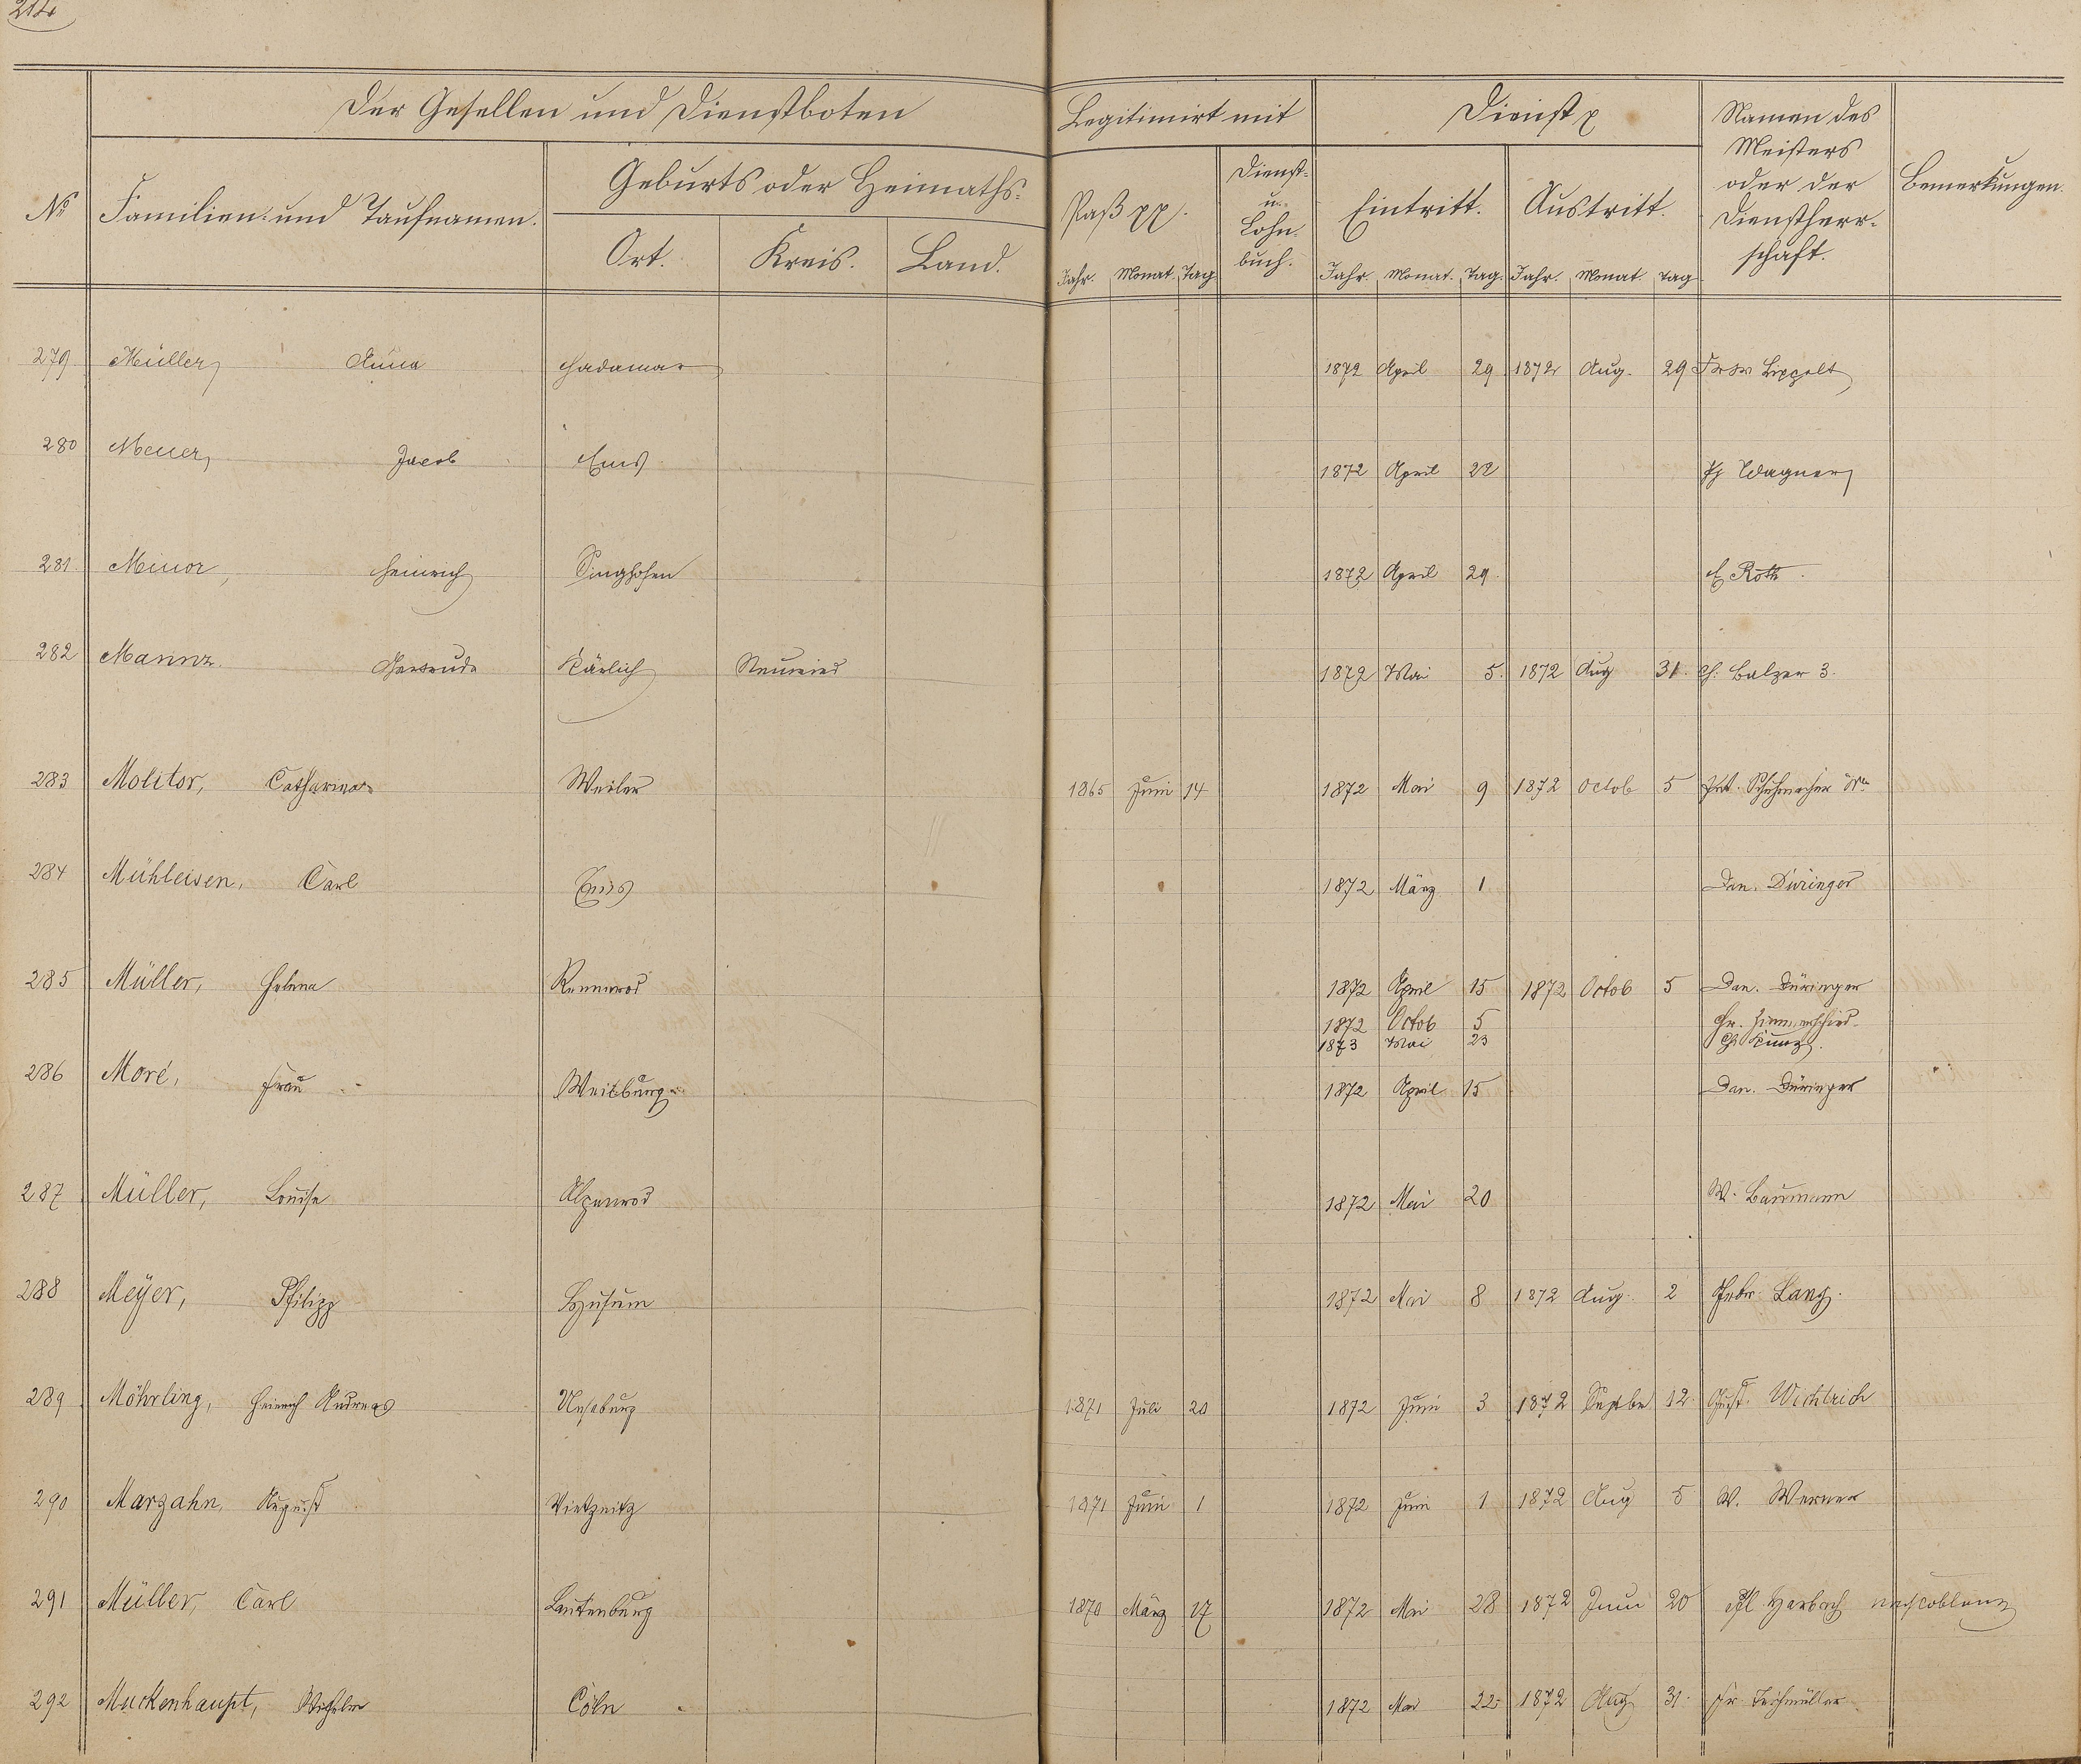 214
Der Gesellen und Dienstboten
Legitimirt mit
Dienst
Namen des
Meisters
oder der
Dienstherr-
schaft.
Bemerkungen.
No
Familien- und Taufnamen.
Geburts oder Heimaths-
Ort.
Kreis.
Land.
Paß pp.
Dienst-
u.
Lohn-
buch.
Eintritt.
Austritt.
Jahr. Monat. Tag
Jahr. Monat. Tag.
Jahr. Monat. Tag
279 Müller, Anna Hadamar 1872 April 29 1872 Aug. 29 Lippelt
280 Meuer, Jacob Ems 1872 April 22 Wagner
281. Minor, Heinrich Singhofen 1872 April 29. Roth.
282 Mannz. Gertrude Kärlich Neuwied 1872 Mai 5. 1872 Aug 31. Balzer 3.
283 Molitor, Catharina Weiler 1865 Juni 14 1872 Mai 9 1872 Octob 5 Schuhmacher
284 Mühleisen, Carl Ems 1872 März 1 Dan. Düringer
285 Müller, Helena Rennerod 1872 April 15 1872 Octob 5 Dan. Düringer
1872 Octob 5 Fr. Zimmerschied
1873 Mai 23 Kunz.
286 Moré, Frau Weilburg 1872 April 15 Dan. Düringer
287 Müller, Louise Alpenrod 1872 Mai 20 W. Baumann
288 Meyer, Philipp Husum 1872 Mai 8 1872 Aug. 2 Gebr. Lang.
289 Möhrling, Heinrich Andreas 1871 Juli 20 1872 Juni 3 1872 Septbr 12. Gust. Wichtrich
290 Marzahn, August Vietznitz 1871 Juni 1 1872 Juni 1 1872 Aug 5 W. Werner
291 Müller, Carl Lautenburg 1870 März 17 1872 Mai 28 1872 Juni 20 Harbach nach Coblenz
292 Muckenhaupt, Wilhelm Cöln 1872 Mai 22 1872 Aug 31. Fr. Teichmüller